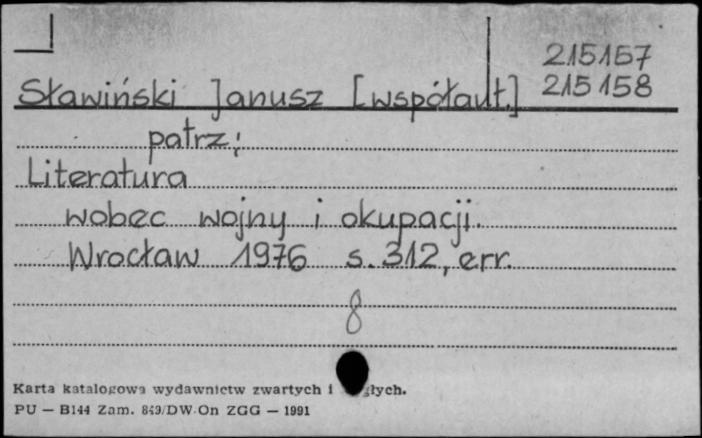 215157
Sławiński Janusz [współaut.] 215158
patrz:
Literatura
wobec wojny i okupacji.
Wrocław 1976 s. 312, err.
8
Karta katalogowa wydawnictw zwartych i
PU — B144 Zam. 849/DW-On ZGG — 1991